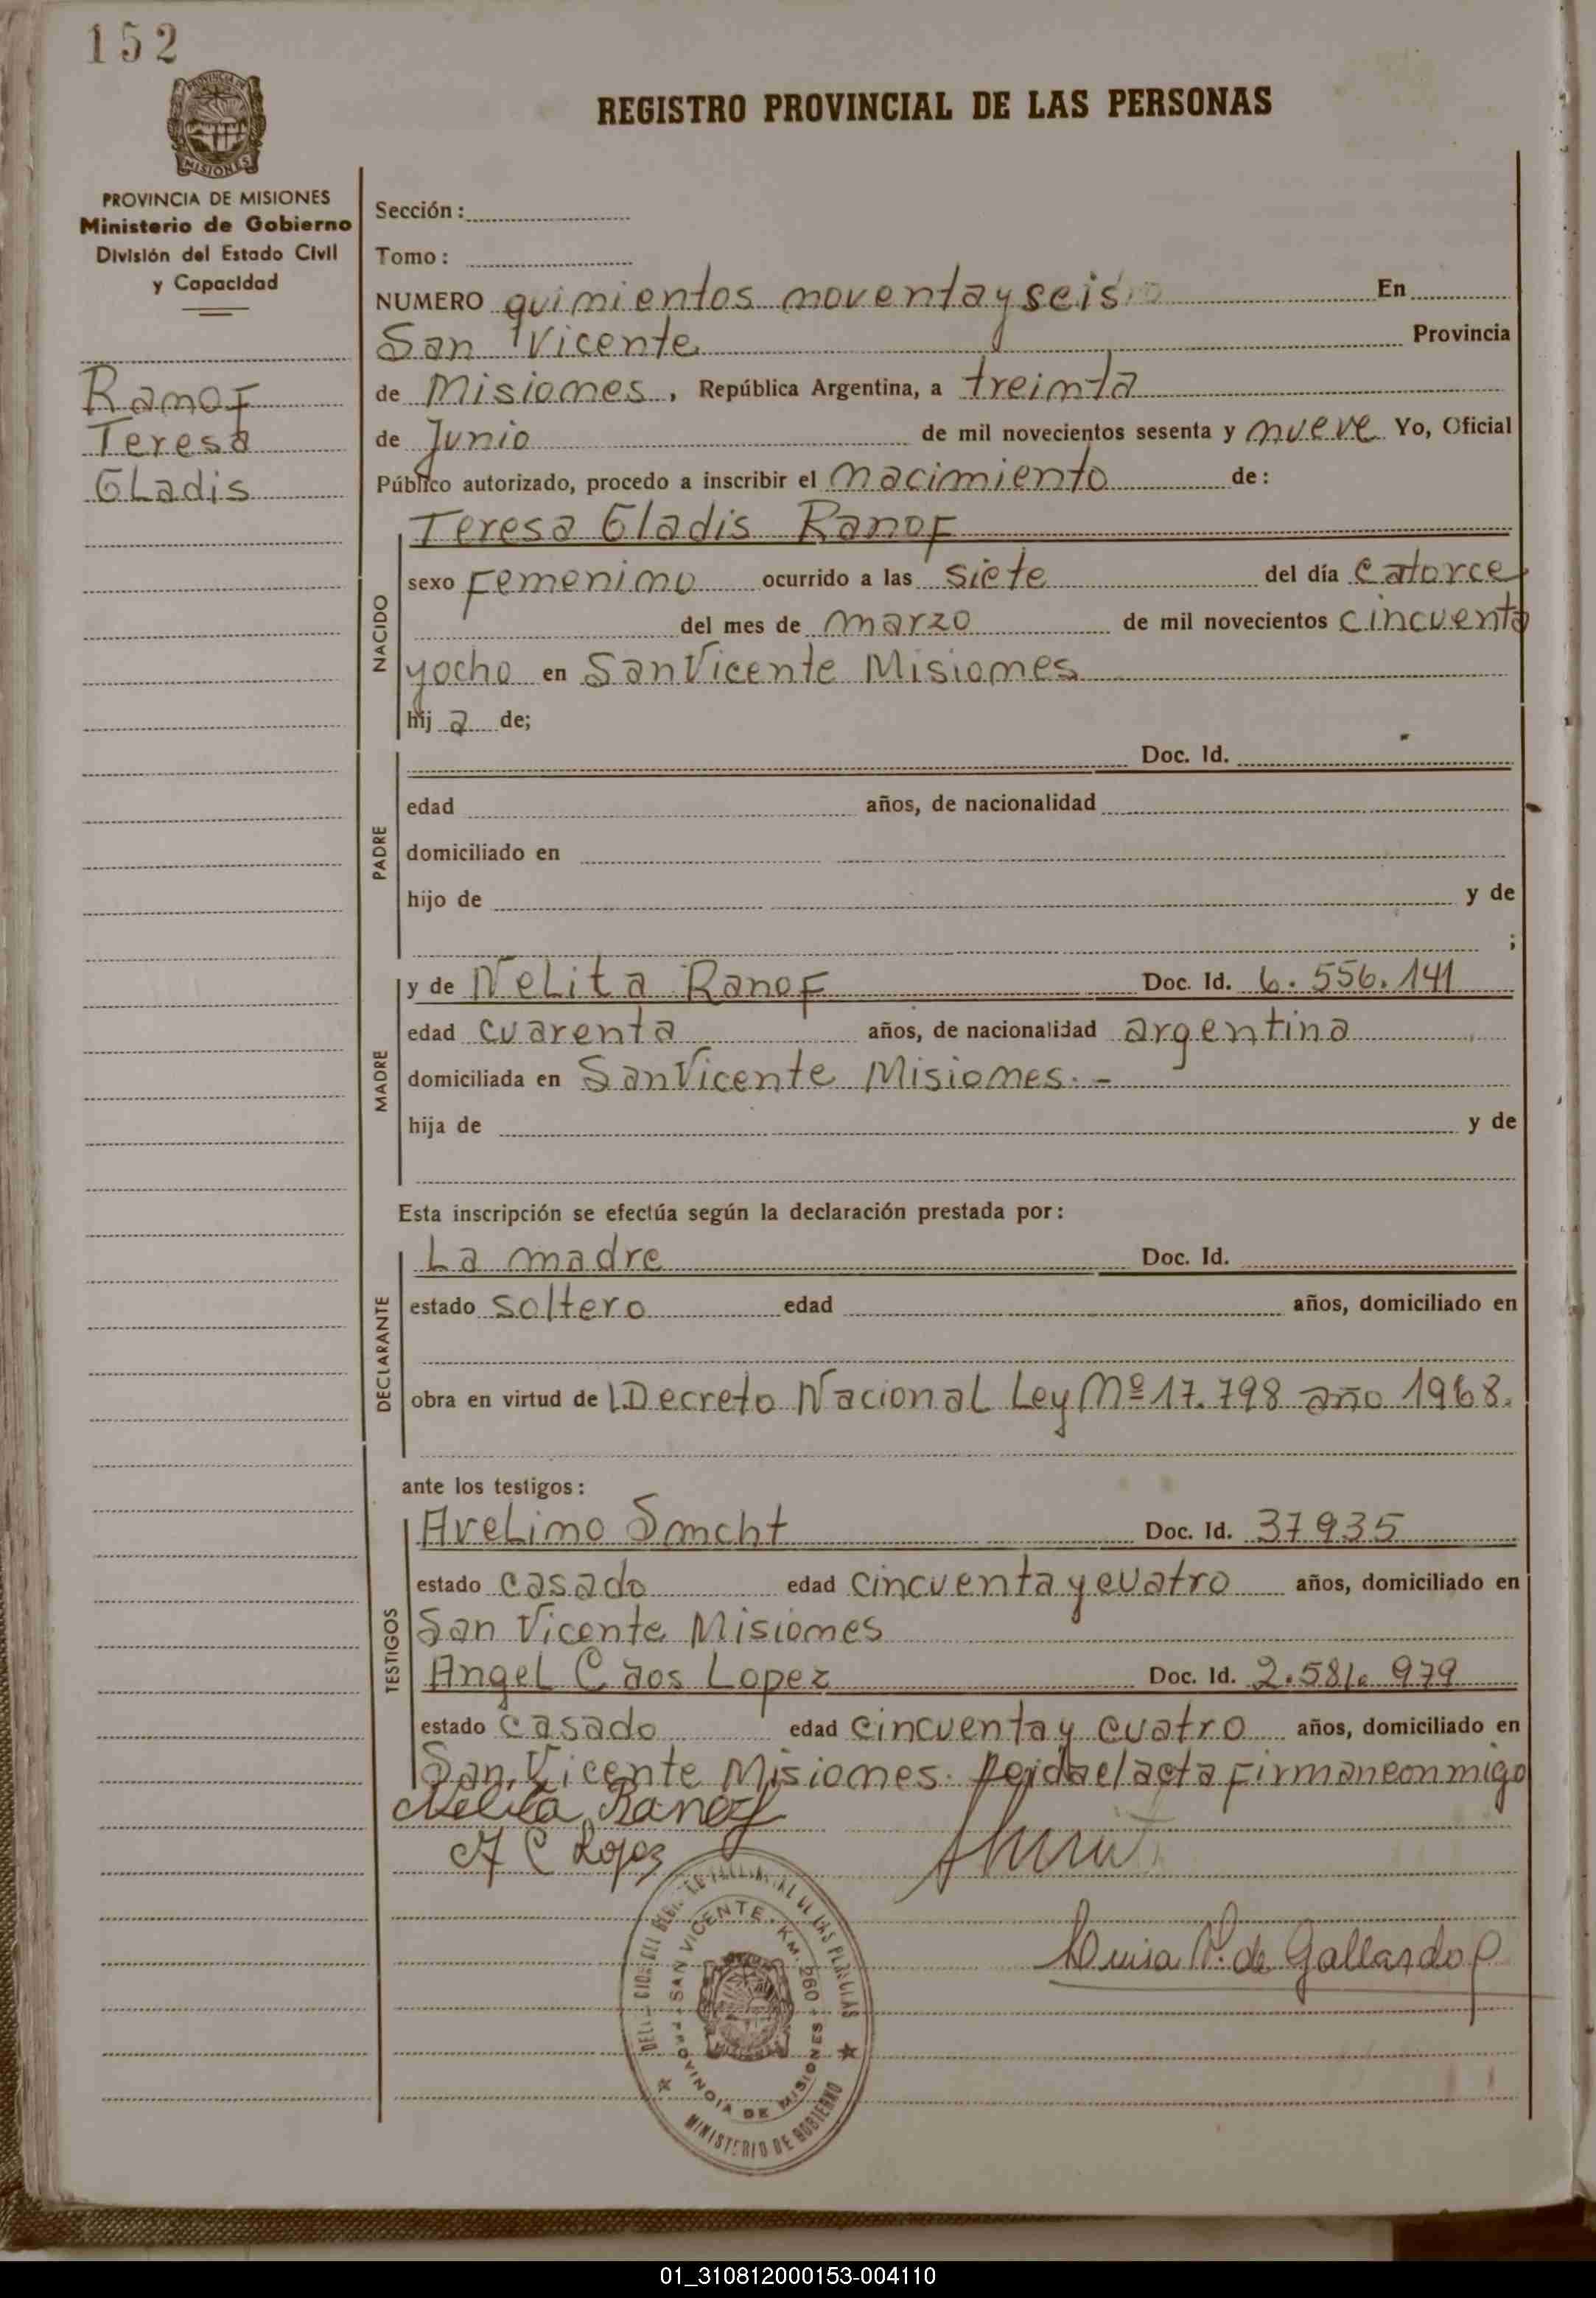 152
PROVINCIA DE
MISIONES
REGISTRO PROVINCIAL DE LAS PERSONAS
PROVINCIA DE MISIONES
Ministerio de Gobierno
División del Estado Civil
y Capacidad
Ranof
Teresa
Gladis
Sección:
Tomo:
NUMERO quimientos moventa y seis En
San Vicente Provincia
de Misiomes, República Argentina, a treimta
de Junio de mil novecientos sesenta y mueve Yo, Oficial
Público autorizado, procedo a inscribir el macimiento de:
NACIDO
Teresa Gladis Ranof
sexo Femenimo ocurrido a las siete del día catorce
del mes de marzo de mil novecientos cincuenta
y ocho en San Vicente Misiomes
hij a de;
PADRE
Doc. Id.
edad años, de nacionalidad
domiciliado en
hijo de y de
;
MADRE
y de Nelita Ranof Doc. Id. 6.556.141
edad cuarenta años, de nacionalidad argentina
domiciliada en San Vicente Misiomes.-
hija de y de
Esta inscripción se efectúa según la declaración prestada por:
DECLARANTE
La madre Doc. Id.
estado soltero edad años, domiciliado en
obra en virtud de Decreto Nacional Ley Nº 17.798 año 1968.
ante los testigos:
TESTIGOS
Avelimo Smcht Doc. Id. 37935
estado casado edad cincuenta y cuatro años, domiciliado en
San Vicente Misiomes
Angel Caos Lopez Doc. Id. 2.581.979
estado casado edad cincuenta y cuatro años, domiciliado en
San Vicente Misiomes. leida el acta Firman conmigo
Nelita Ranof
A C Lopez
Luisa P. de Gallardo
DE LAS
SAN VICENTE - KM. 260
PROVINCIA DE MISIONES
MINISTERIO DE GOBIERNO
01_310812000153-004110